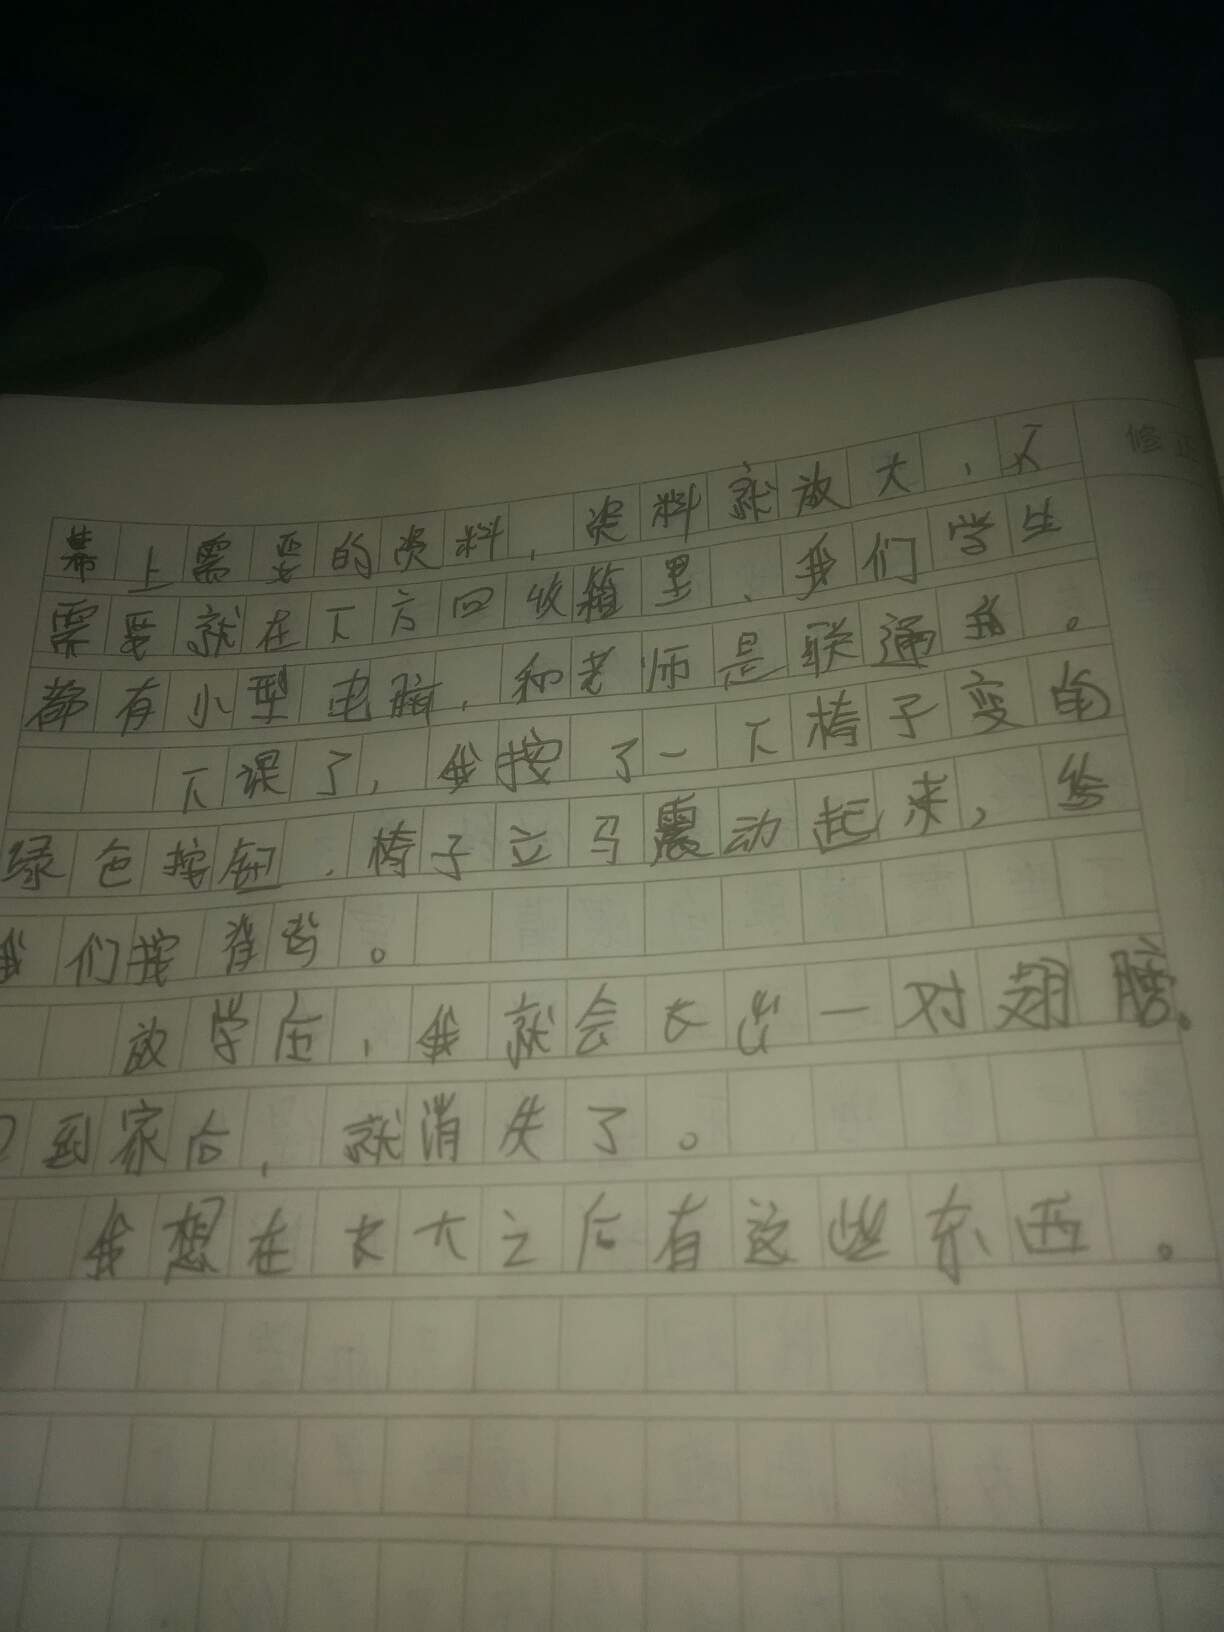 幕上需要的资料，资料就放大，不
需要就在下方回收箱里、我们学生
都有小型电脑，和老师是联通的。
下课了，我按了一下椅子变的
绿色按钮，椅子立马震动起来，给
我们按背。
放学后，我就会长出一对翅膀。
到家后，就消失了。
我想在长大之后有这些东西。